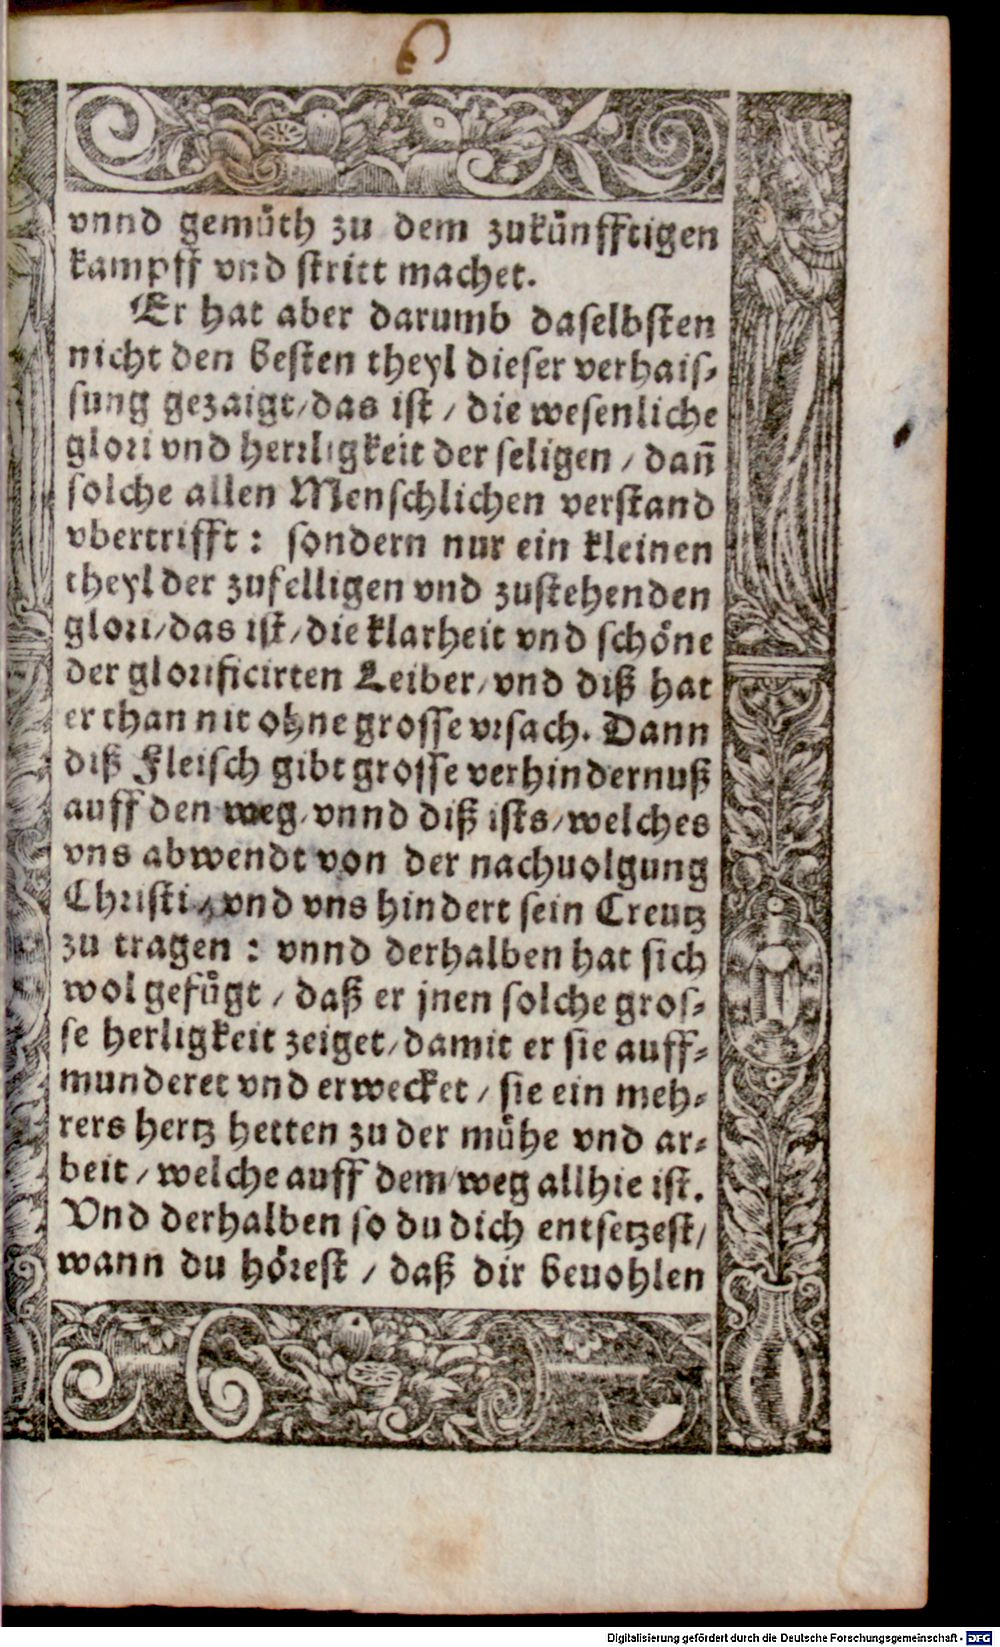 vnnd gemuͤth zu dem zukuͤnfftigen
kampff vnd stritt machet.
Er hat aber darumb daselbsten
nicht den besten theyl dieser verhais⸗
sung gezaigt/das ist / die wesenliche
glori vnd herrligkeit der seligen / dañ
solche allen Menschlichen verstand
vbertrifft : sondern nur ein kleinen
theyl der zufelligen vnd zustehenden
glori/das ist/die klarheit vnd schoͤne
der glorificirten Leiber/vnd diß hat
er than nit ohne grosse vrsach. Dann
diß Fleisch gibt grosse verhindernuß
auff den weg/vnnd diß ists/welches
vns abwendt von der nachuolgung
Christi / vnd vns hindert sein Creutz
zu tragen : vnnd derhalben hat sich
wol gefuͤgt / daß er jnen solche gros⸗
se herligkeit zeiget/damit er sie auff⸗
munderet vnd erwecket / sie ein meh⸗
rers hertz hetten zu der muͤhe vnd ar⸗
beit / welche auff dem weg allhie ist.
Vnd derhalben so du dich entsetzest/
wann du hoͤrest / daß dir beuohlen
Digitalisierung gefördert durch die Deutsche Forschungsgemeinschaft - DFG